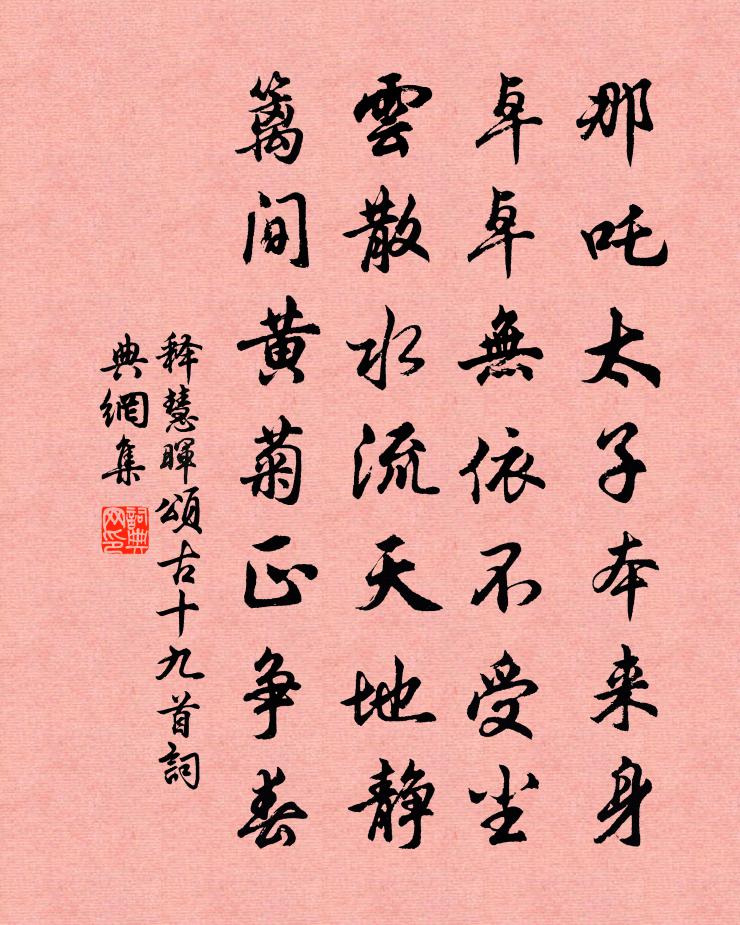 那吒太子本来身
卓卓無依不受尘
雲散水流天地静
篱间黄菊正争春
释慧暉頌古十九首詞
典網集
詞典
网印